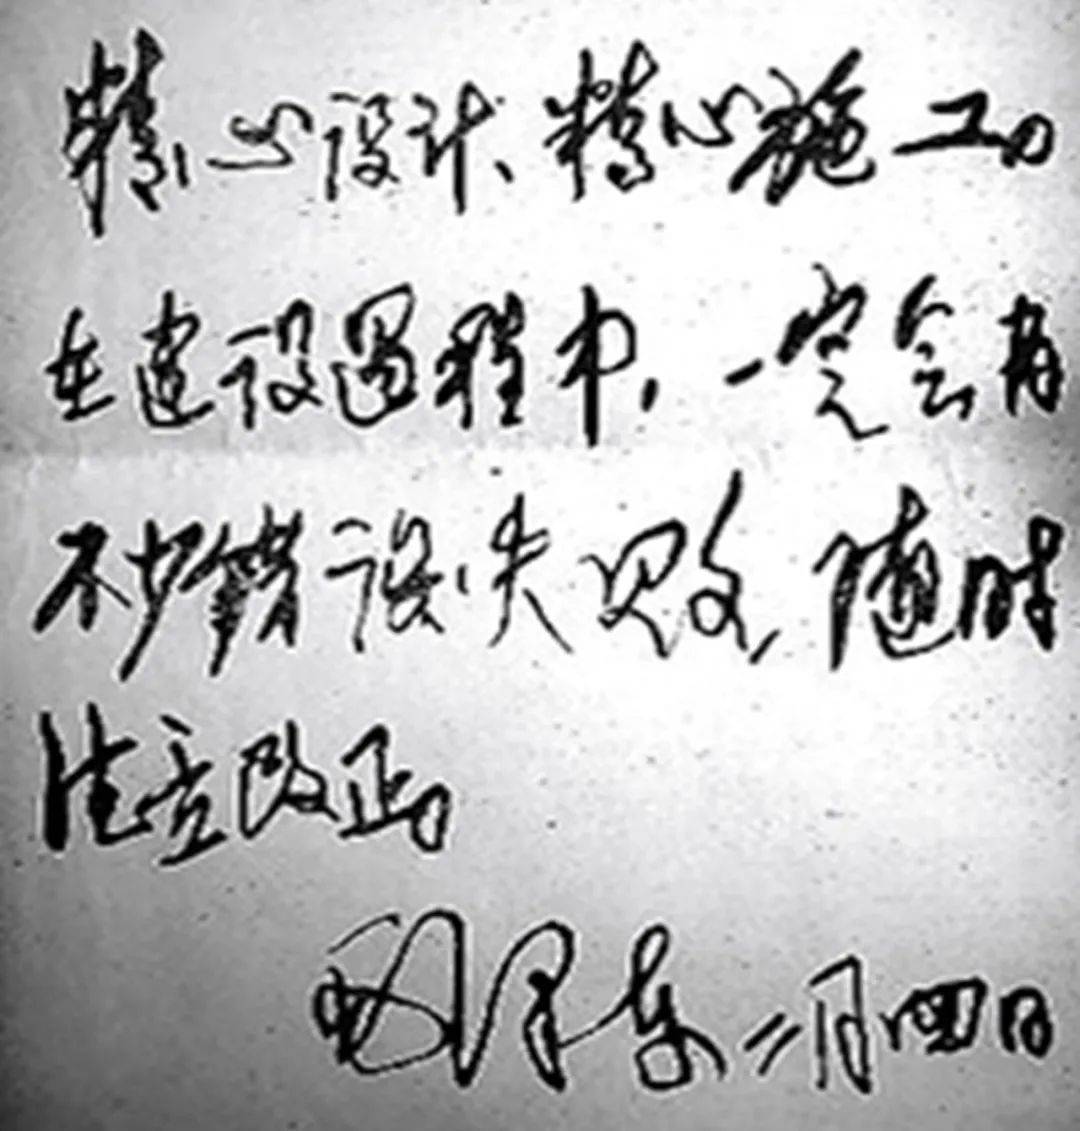 精心设计、精心施工。
在建设过程中,一定会有
不少错误失败,随时
注意改正。
毛泽东 二月四日